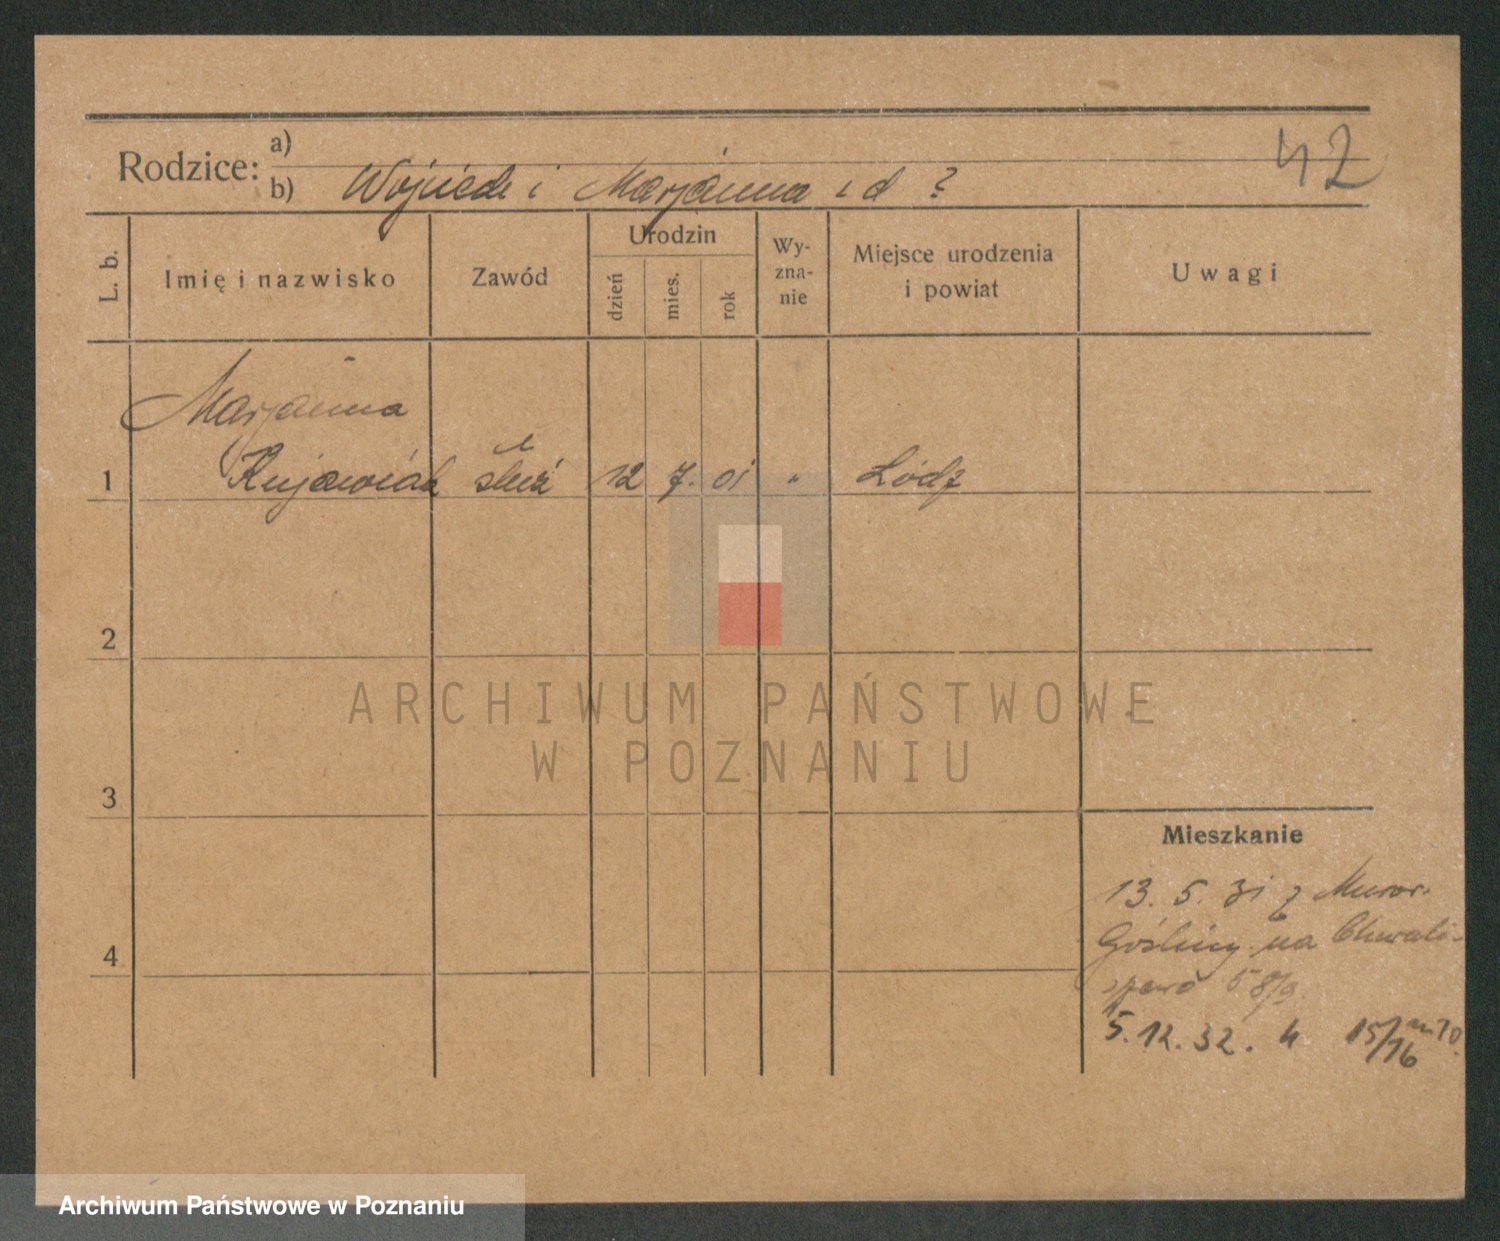 42
Rodzice: a)
b) Wojciech i Marjanna z d ?
L. b.
Imię i nazwisko
Zawód
Urodzin
dzień
mies.
rok
Wy-
zna-
nie
Miejsce urodzenia
i powiat
Uwagi
Marjanna
1 Kujawiak 12 7. 01 " Łódź
2
3
4
Mieszkanie
13. 5. 31 z Murow.
Gośliny na Chwali-
szewo 58/9.
5. 12. 32. 15/16 m 10.
ARCHIWUM PAŃSTWOWE
W POZNANIU
Archiwum Państwowe w Poznaniu